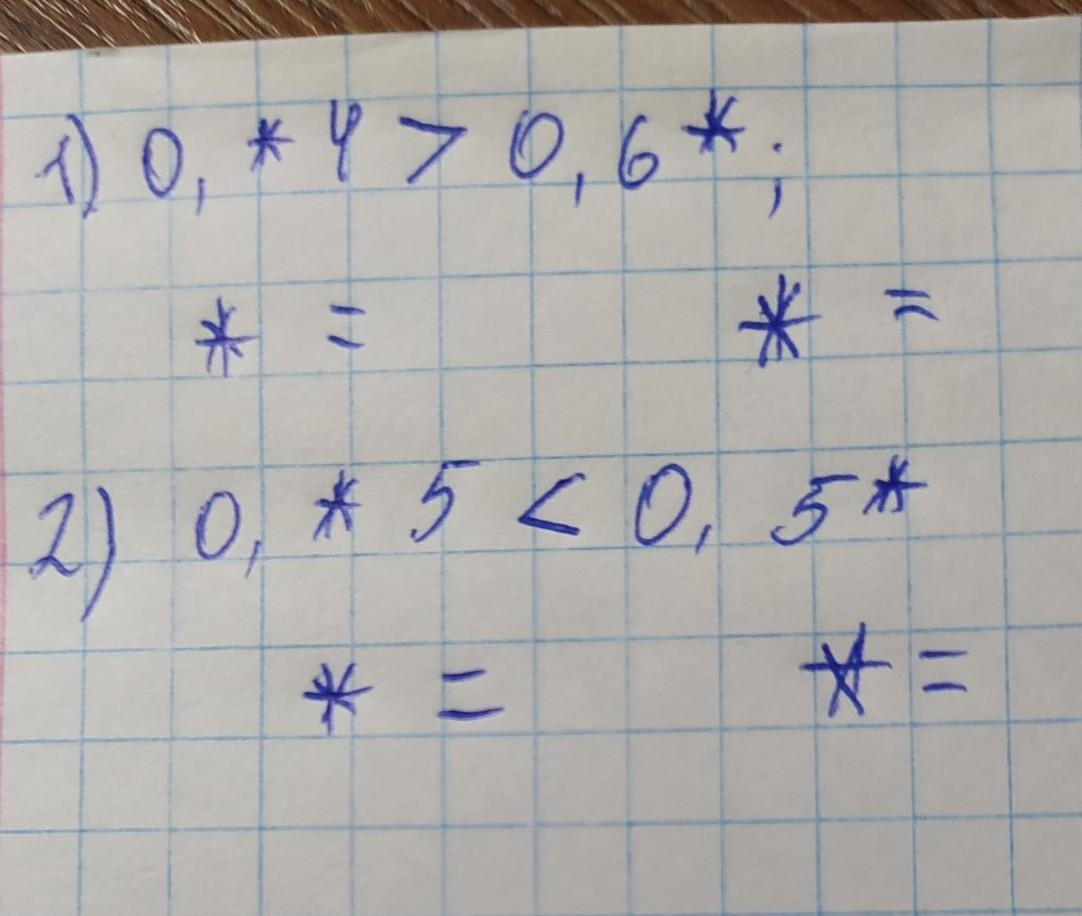 1) 0,*4 > 0,6*;
* = * =
2) 0,*5 < 0,5*
* = * =